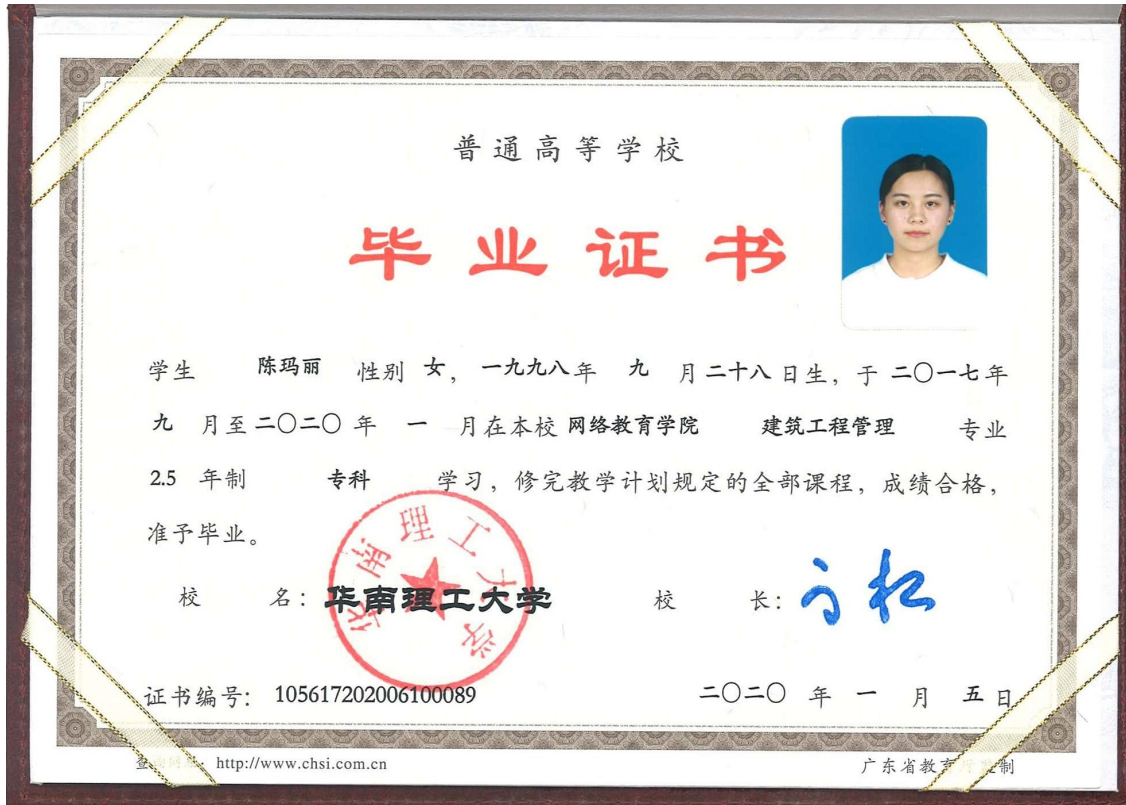 普通高等学校
毕业证书
学生 陈玛丽 性别 女，一九九八年 九 月二十八日生，于二〇一七年
九 月至二〇二〇年 一 月在本校 网络教育学院 建筑工程管理 专业
2.5 年制 专科 学习，修完教学计划规定的全部课程，成绩合格，
准予毕业。
华南理工大学
校 名：华南理工大学 校 长：
证书编号：105617202006100089 二〇二〇 年 一 月 五日
http://www.chsi.com.cn 广东省教育厅监制